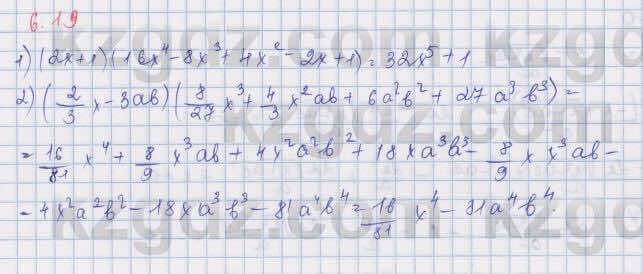 6.19
1) (2x+1)(16x⁴-8x³+4x²-2x+1)=32x⁵+1
2) (2/3 x-3ab)(8/27 x³+4/3 x²ab+6a²b²+27a³b³)=
=16/81 x⁴+8/9 x³ab+4x²a²b²+18xa³b³-8/9 x x³ab-
-4x²a²b²-18xa³b³-81a⁴b⁴=16/81 x⁴-31a⁴b⁴.
kzgdz.com